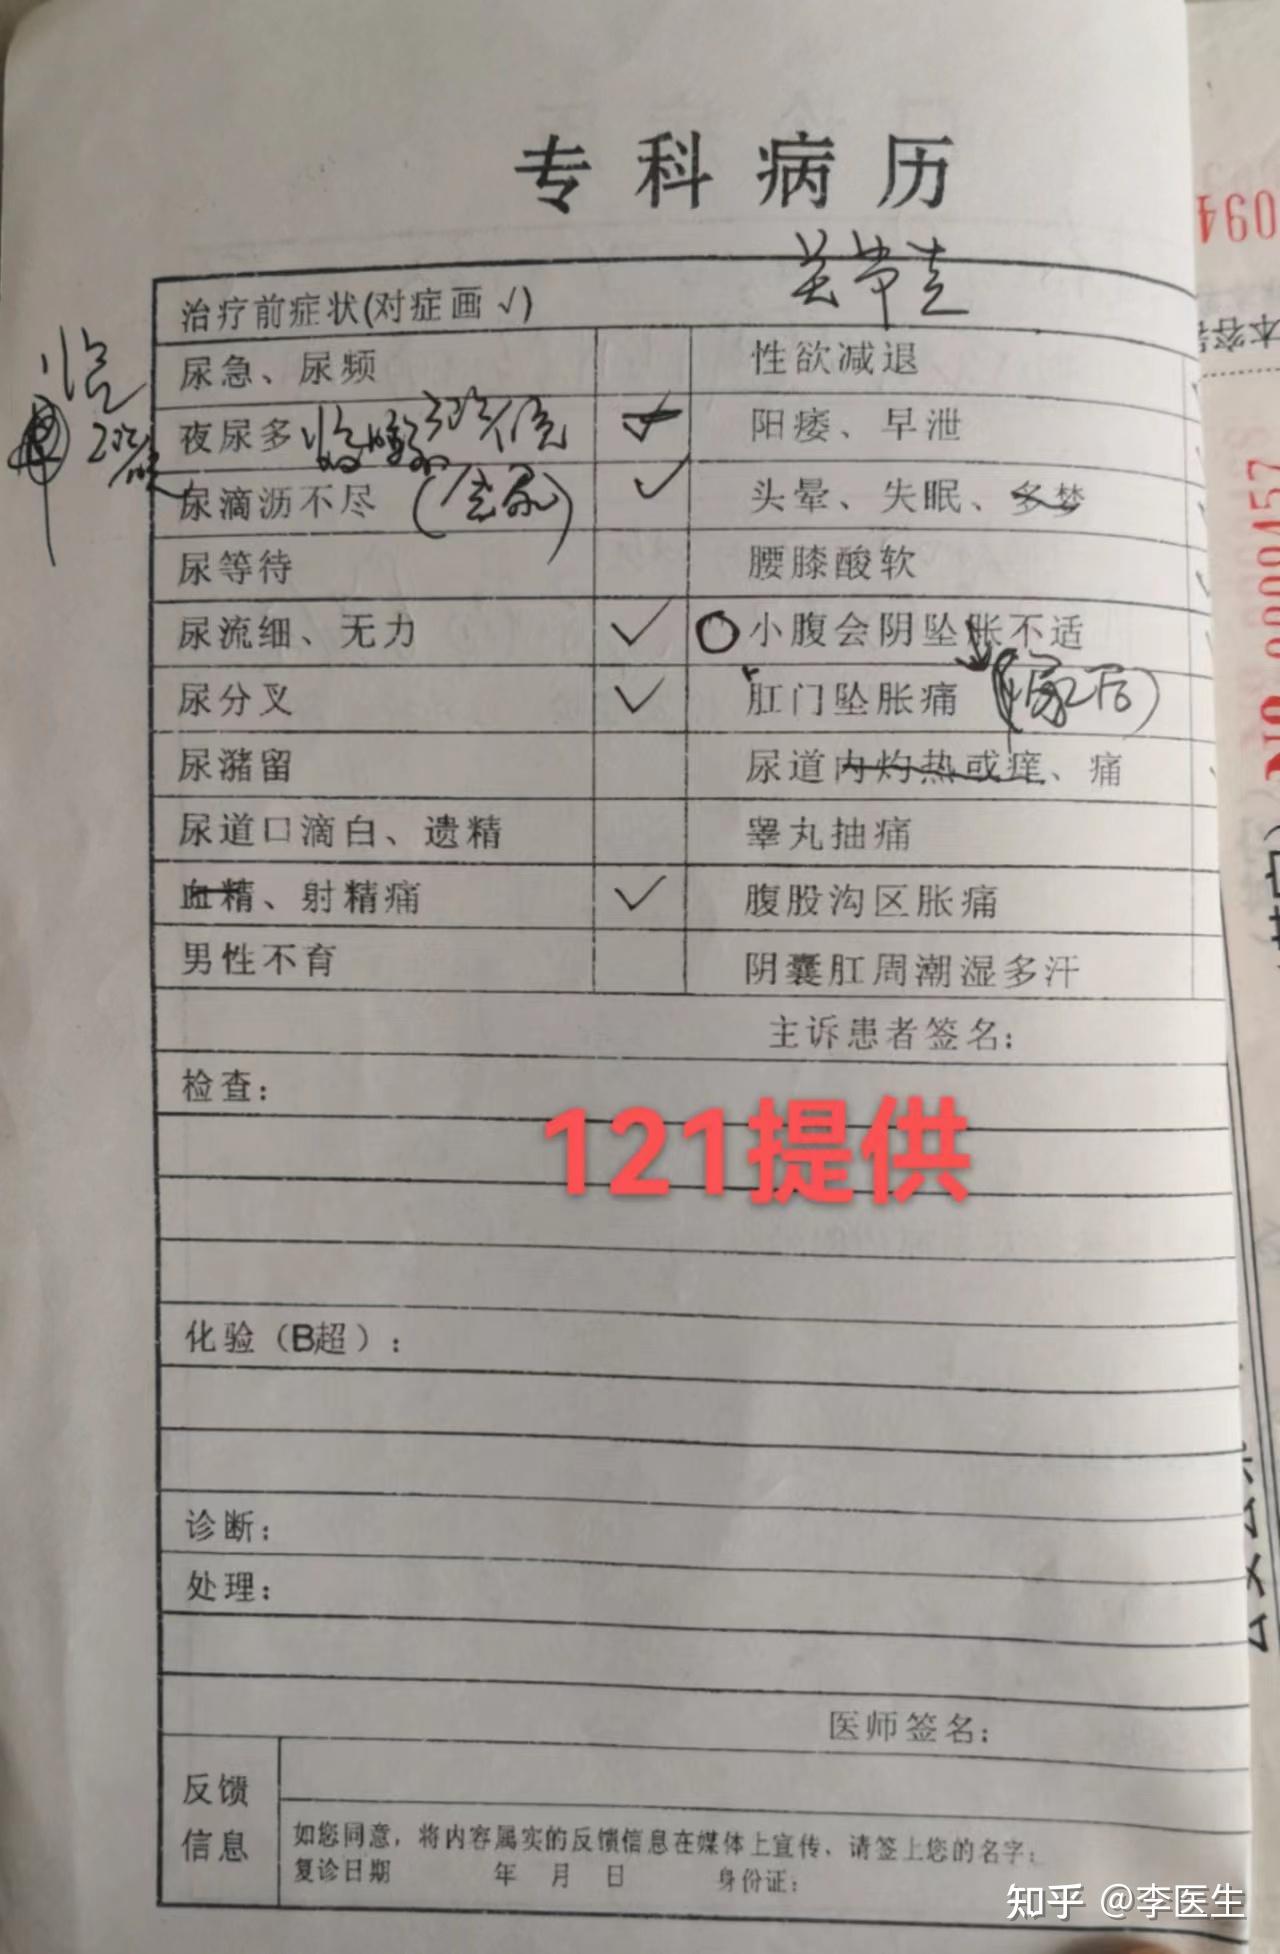 专科病历
治疗前症状(对症画√)
尿急、尿频 性欲减退
夜尿多 √ 阳痿、早泄
尿滴沥不尽 √ 头晕、失眠、多梦
尿等待 腰膝酸软
尿流细、无力 √ 小腹会阴坠胀不适
尿分叉 √ 肛门坠胀痛 (尿后)
尿潴留 尿道内灼热或痒、痛
尿道口滴白、遗精 睾丸抽痛
血精、射精痛 √ 腹股沟区胀痛
男性不育 阴囊肛周潮湿多汗
主诉患者签名:
检查:
121提供
化验(B超):
诊断:
处理:
医师签名:
反馈
信息
如您同意，将内容属实的反馈信息在媒体上宣传，请签上您的名字:
复诊日期 年 月 日 身份证:
知乎 @李医生